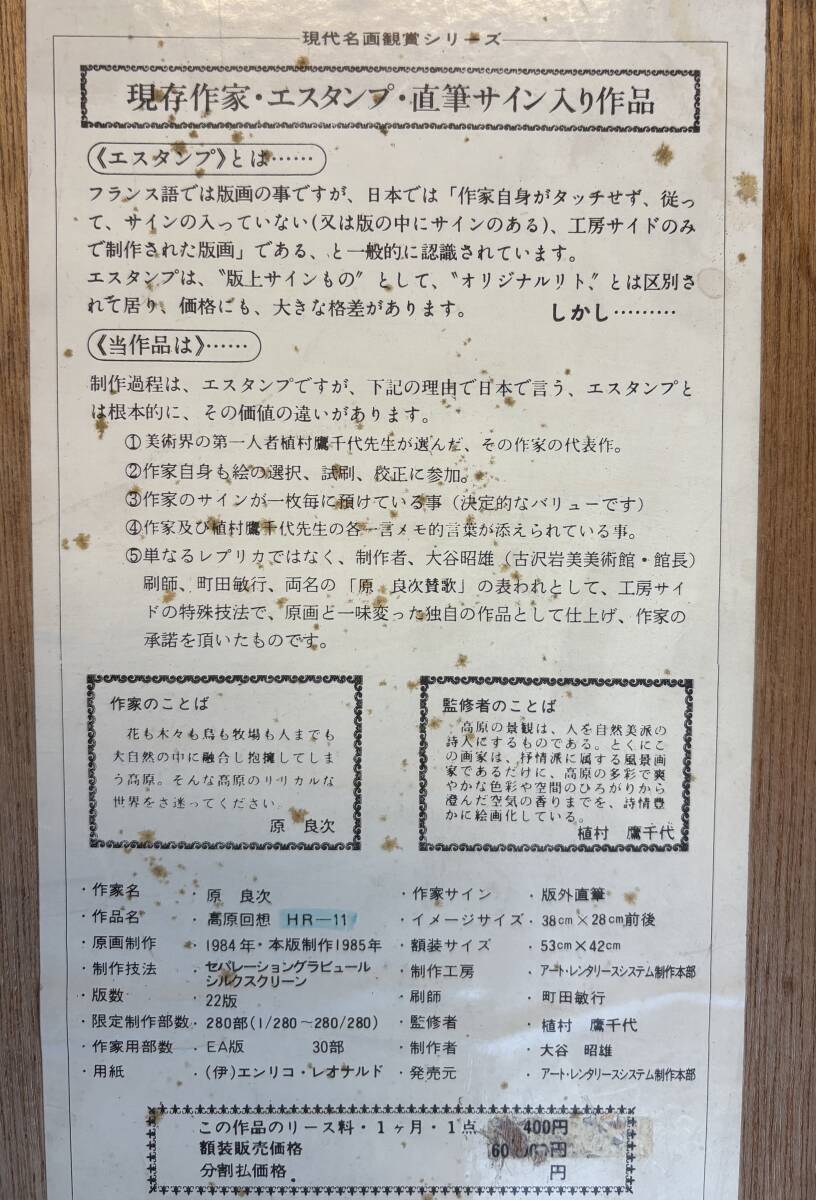 現代名画観賞シリーズ
現存作家・エスタンプ・直筆サイン入り作品
《エスタンプ》とは……
フランス語では版画の事ですが、日本では「作家自身がタッチせず、従っ
て、サインの入っていない(又は版の中にサインのある)、工房サイドのみ
で制作された版画」である、と一般的に認識されています。
エスタンプは、〝版上サインもの〟として、〝オリジナルリト〟とは区別さ
れて居り、価格にも、大きな格差があります。　しかし………
《当作品は》……
制作過程は、エスタンプですが、下記の理由で日本で言う、エスタンプと
は根本的に、その価値の違いがあります。
①美術界の第一人者植村鷹千代先生が選んだ、その作家の代表作。
②作家自身も絵の選択、試刷、校正に参加。
③作家のサインが一枚毎に預けている事（決定的なバリューです）
④作家及び植村鷹千代先生の各一言メモ的言葉が添えられている事。
⑤単なるレプリカではなく、制作者、大谷昭雄（古沢岩美美術館・館長）
刷師、町田敏行、両名の「原　良次賛歌」の表われとして、工房サイ
ドの特殊技法で、原画と一味変った独自の作品として仕上げ、作家の
承諾を頂いたものです。
作家のことば
花も木々も鳥も牧場も人までも
大自然の中に融合し抱擁してしま
う高原。そんな高原のリリカルな
世界をさ迷ってください。
原　良次
監修者のことば
高原の景観は、人を自然美派の
詩人にするものである。とくにこ
の画家は、抒情派に属する風景画
家であるだけに、高原の多彩で爽
やかな色彩や空間のひろがりから
澄んだ空気の香りまでを、詩情豊
かに絵画化している。
植村　鷹千代
・作家名　・原　良次
・作品名　・高原回想　HR—11
・原画制作　・1984年・本版制作1985年
・制作技法　・セパレーショングラビュール
シルクスクリーン
・版数　・22版
・限定制作部数・280部(1/280～280/280)
・作家用部数　・EA版　30部
・用紙　・(伊)エンリコ・レオナルド
・作家サイン　・版外直筆
・イメージサイズ・38cm×28cm前後
・額装サイズ　・53cm×42cm
・制作工房　・アート・レンタリースシステム制作本部
・刷師　・町田敏行
・監修者　・植村　鷹千代
・制作者　・大谷　昭雄
・発売元　・アート・レンタリースシステム制作本部
この作品のリース料・1ヶ月・1点　400円
額装販売価格　円
分割払価格　円